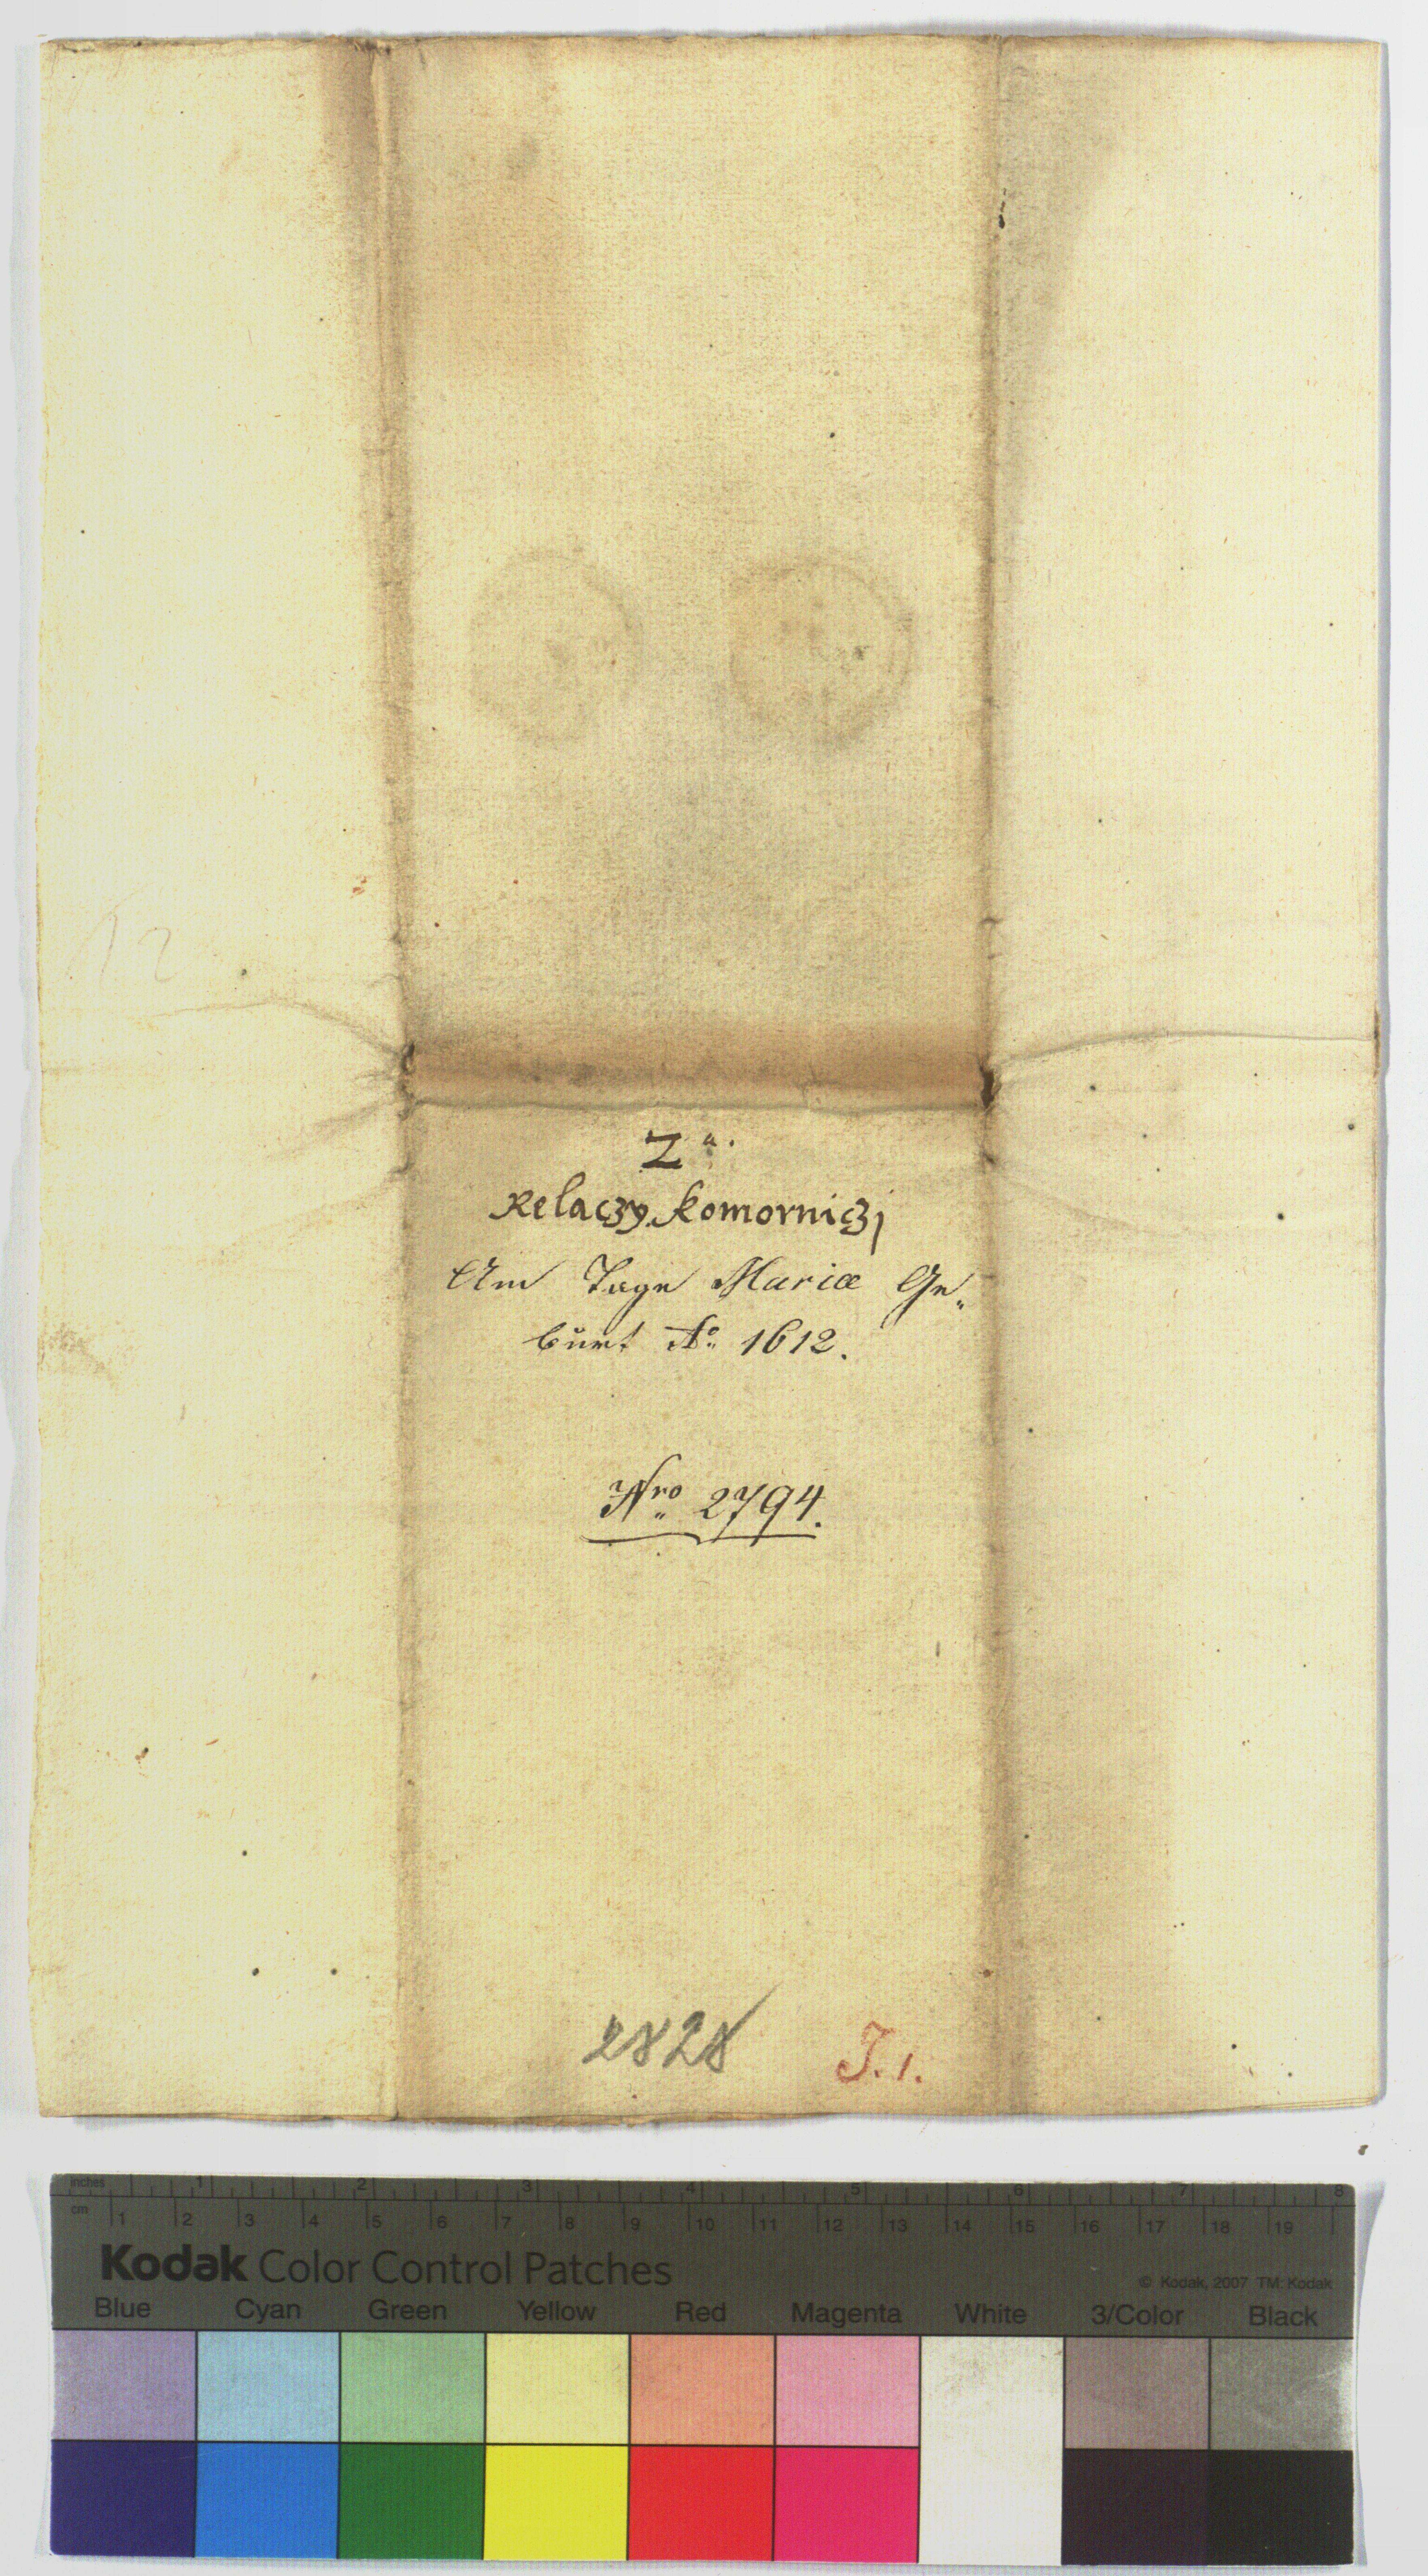 Z a.
Relaczy komorniczj
Am Tage Mariæ Ge„
burt Aº 1612.
Nro 2794.
2828
J. 1.
12
inches 1 2 3 4 5 6 7 8
cm 1 2 3 4 5 6 7 8 9 10 11 12 13 14 15 16 17 18 19
Kodak Color Control Patches
© Kodak, 2007 TM: Kodak
Blue Cyan Green Yellow Red Magenta White 3/Color Black